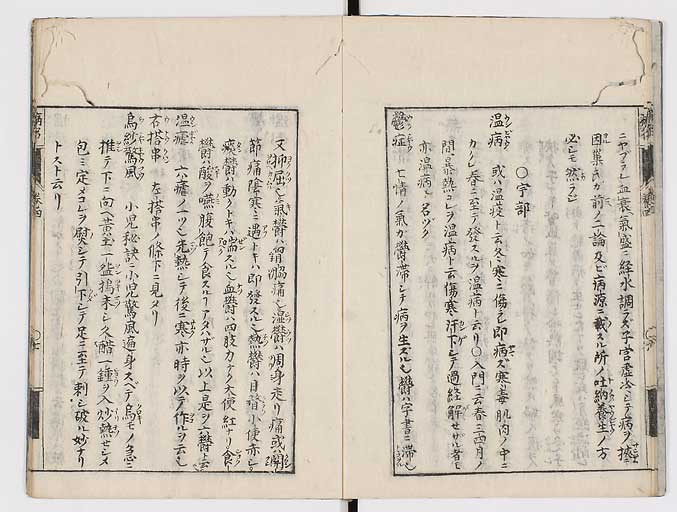 ニヤブラレ血衰氣盛ニ経水調ラズ子宮虚冷シテ病ヲ挾ム
因巣氏カ前ノ一論及ビ病源ニ載スル所ノ吐納養生ノ方
必シモ然ラズ
〇宇部
温病 或ハ温疫ト云冬寒ニ傷ラレ即病ズ寒毒肌肉ノ中ニ
カクレ春ニ至テ發スルヲ温病ト云リ〇入門ニ云春三四月ノ
間暴熱コレヲ温病ト云傷寒汗下シテ過経解セザル者モ
亦温病ト名ヅク
鬱症 七情ノ氣カ鬱滞シテ病ヲ生ズル也鬱ハ字書ニ滞也
又抑屈也氣鬱ハ胷脇痛ム湿鬱ハ周身走リ痛或ハ関
節痛陰寒ニ遇トキハ即發スル也熱鬱ハ目瞀小便赤シ
痰鬱ハ動クトキハ喘スル也血鬱ハ四肢力ナク大便紅ナリ食
鬱ハ酸ヲ噯腹飽テ食スルヿアタハザル也以上是ヲ六鬱ト云
温瘧 六瘧ノ一ツ也先熱シテ後ニ寒亦時ヲ以テ作ルヲ云也
右搭串 左搭串ノ條下ニ見タリ
烏紗驚風 小児秘訣ニ小児驚風遍身スベテ烏モノ急ニ
推テ下ニ向ヘ黄土一盌搗末シ久酷一鍾ヲ入炒熱セシメ
包ミ定メコレヲ熨シテ引下シテ足ニ至テ刺シ破ル妙ナリ
トスト云リ
巻四